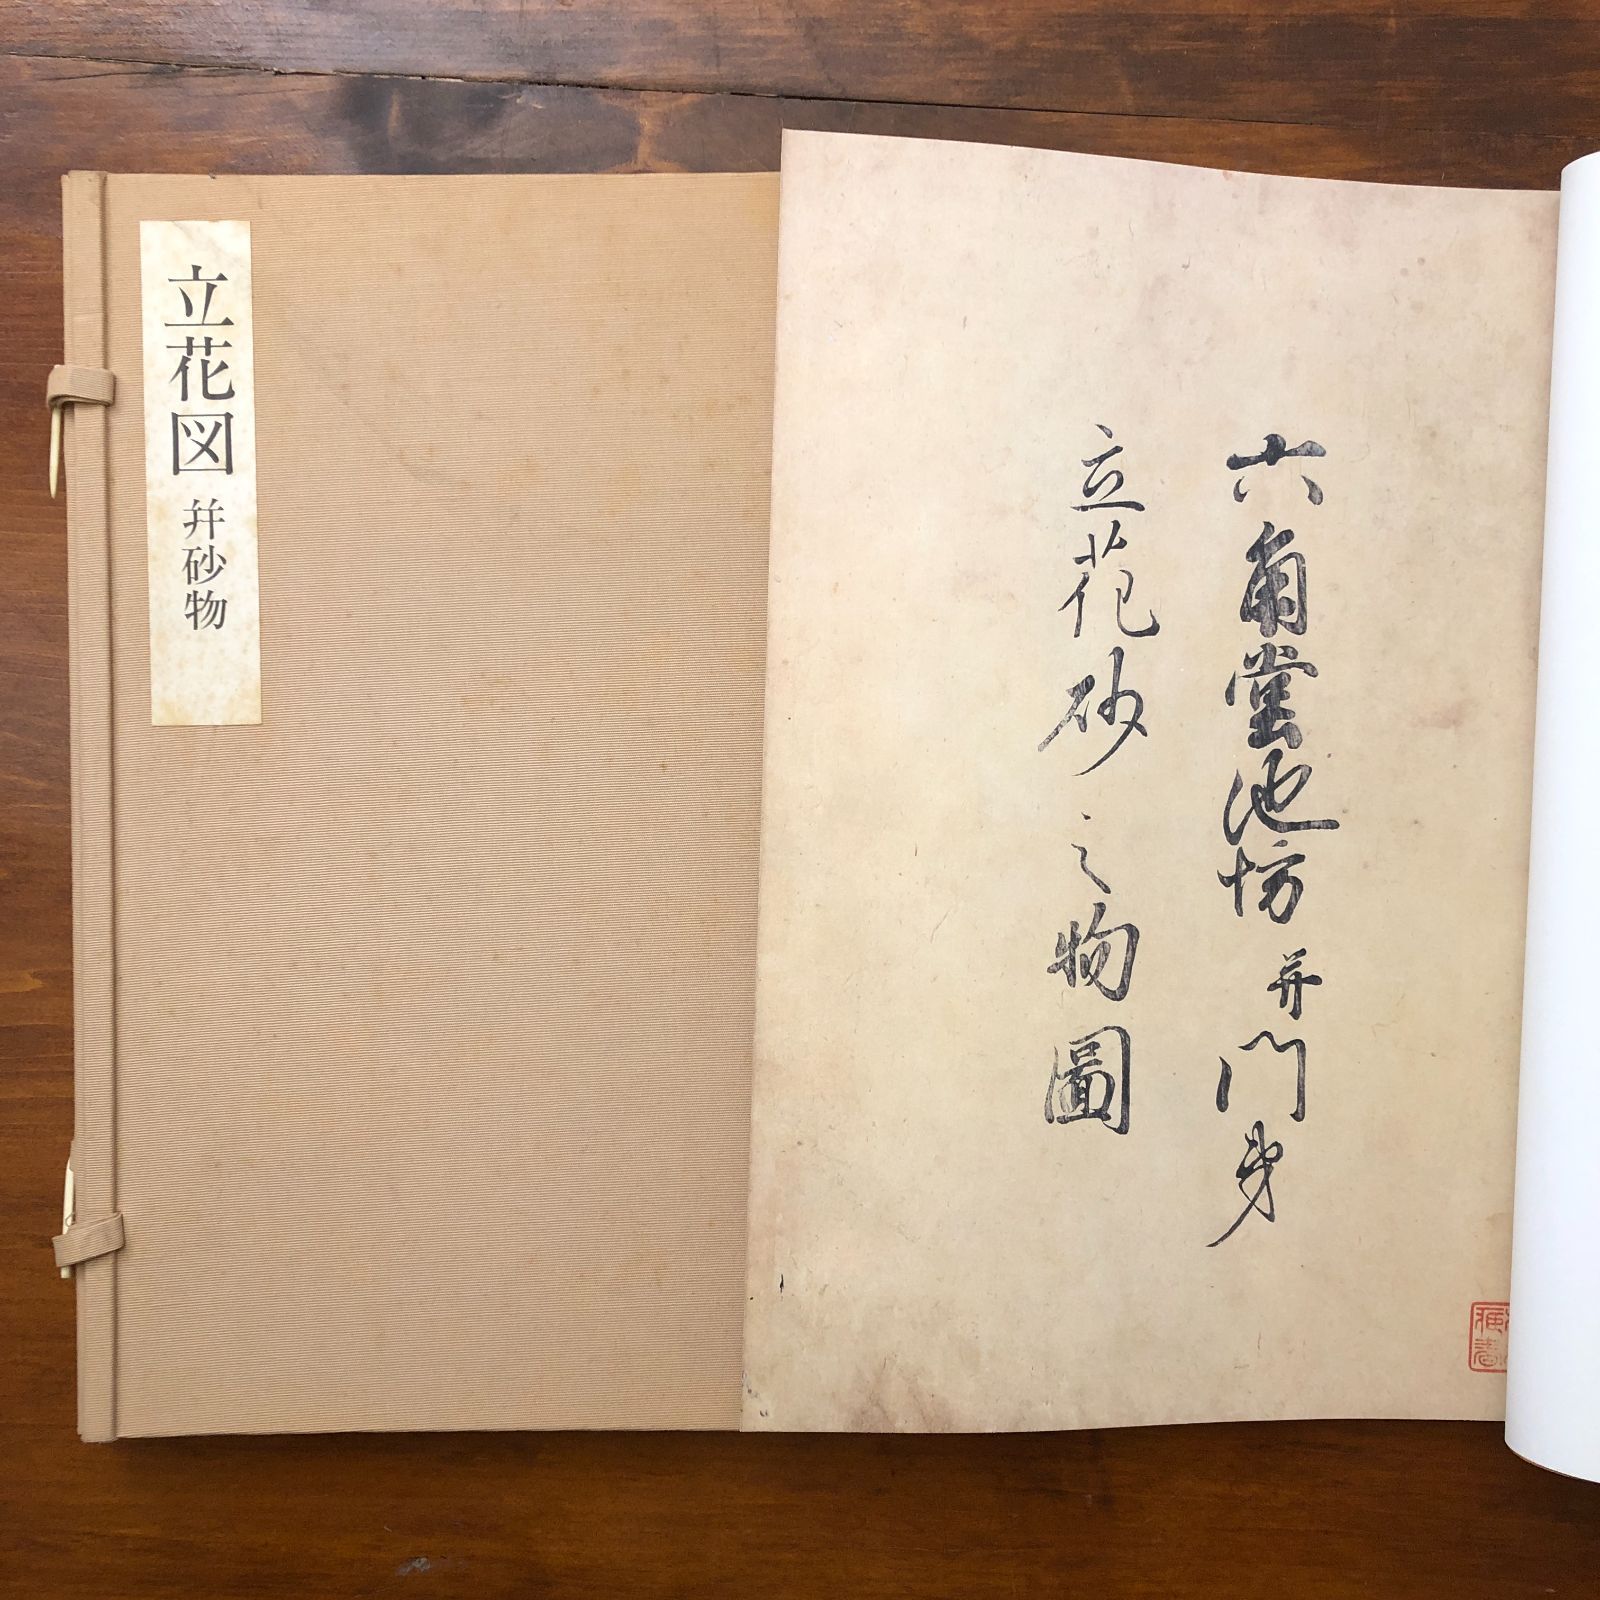 立花図 并砂物
六角堂池坊并門弟
立花砂之物圖